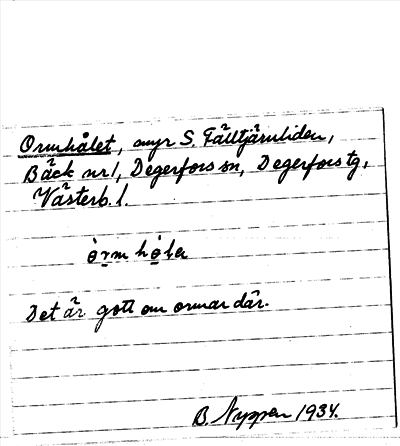 Ormhålet, myr S. Fälltjärnliden,
Bäck nr 1, Degerfors sn, Degerfors tg,
Västerb. l.
òrm hò̱la
Det är gott om ormar där.
B. Nyppen 1934.